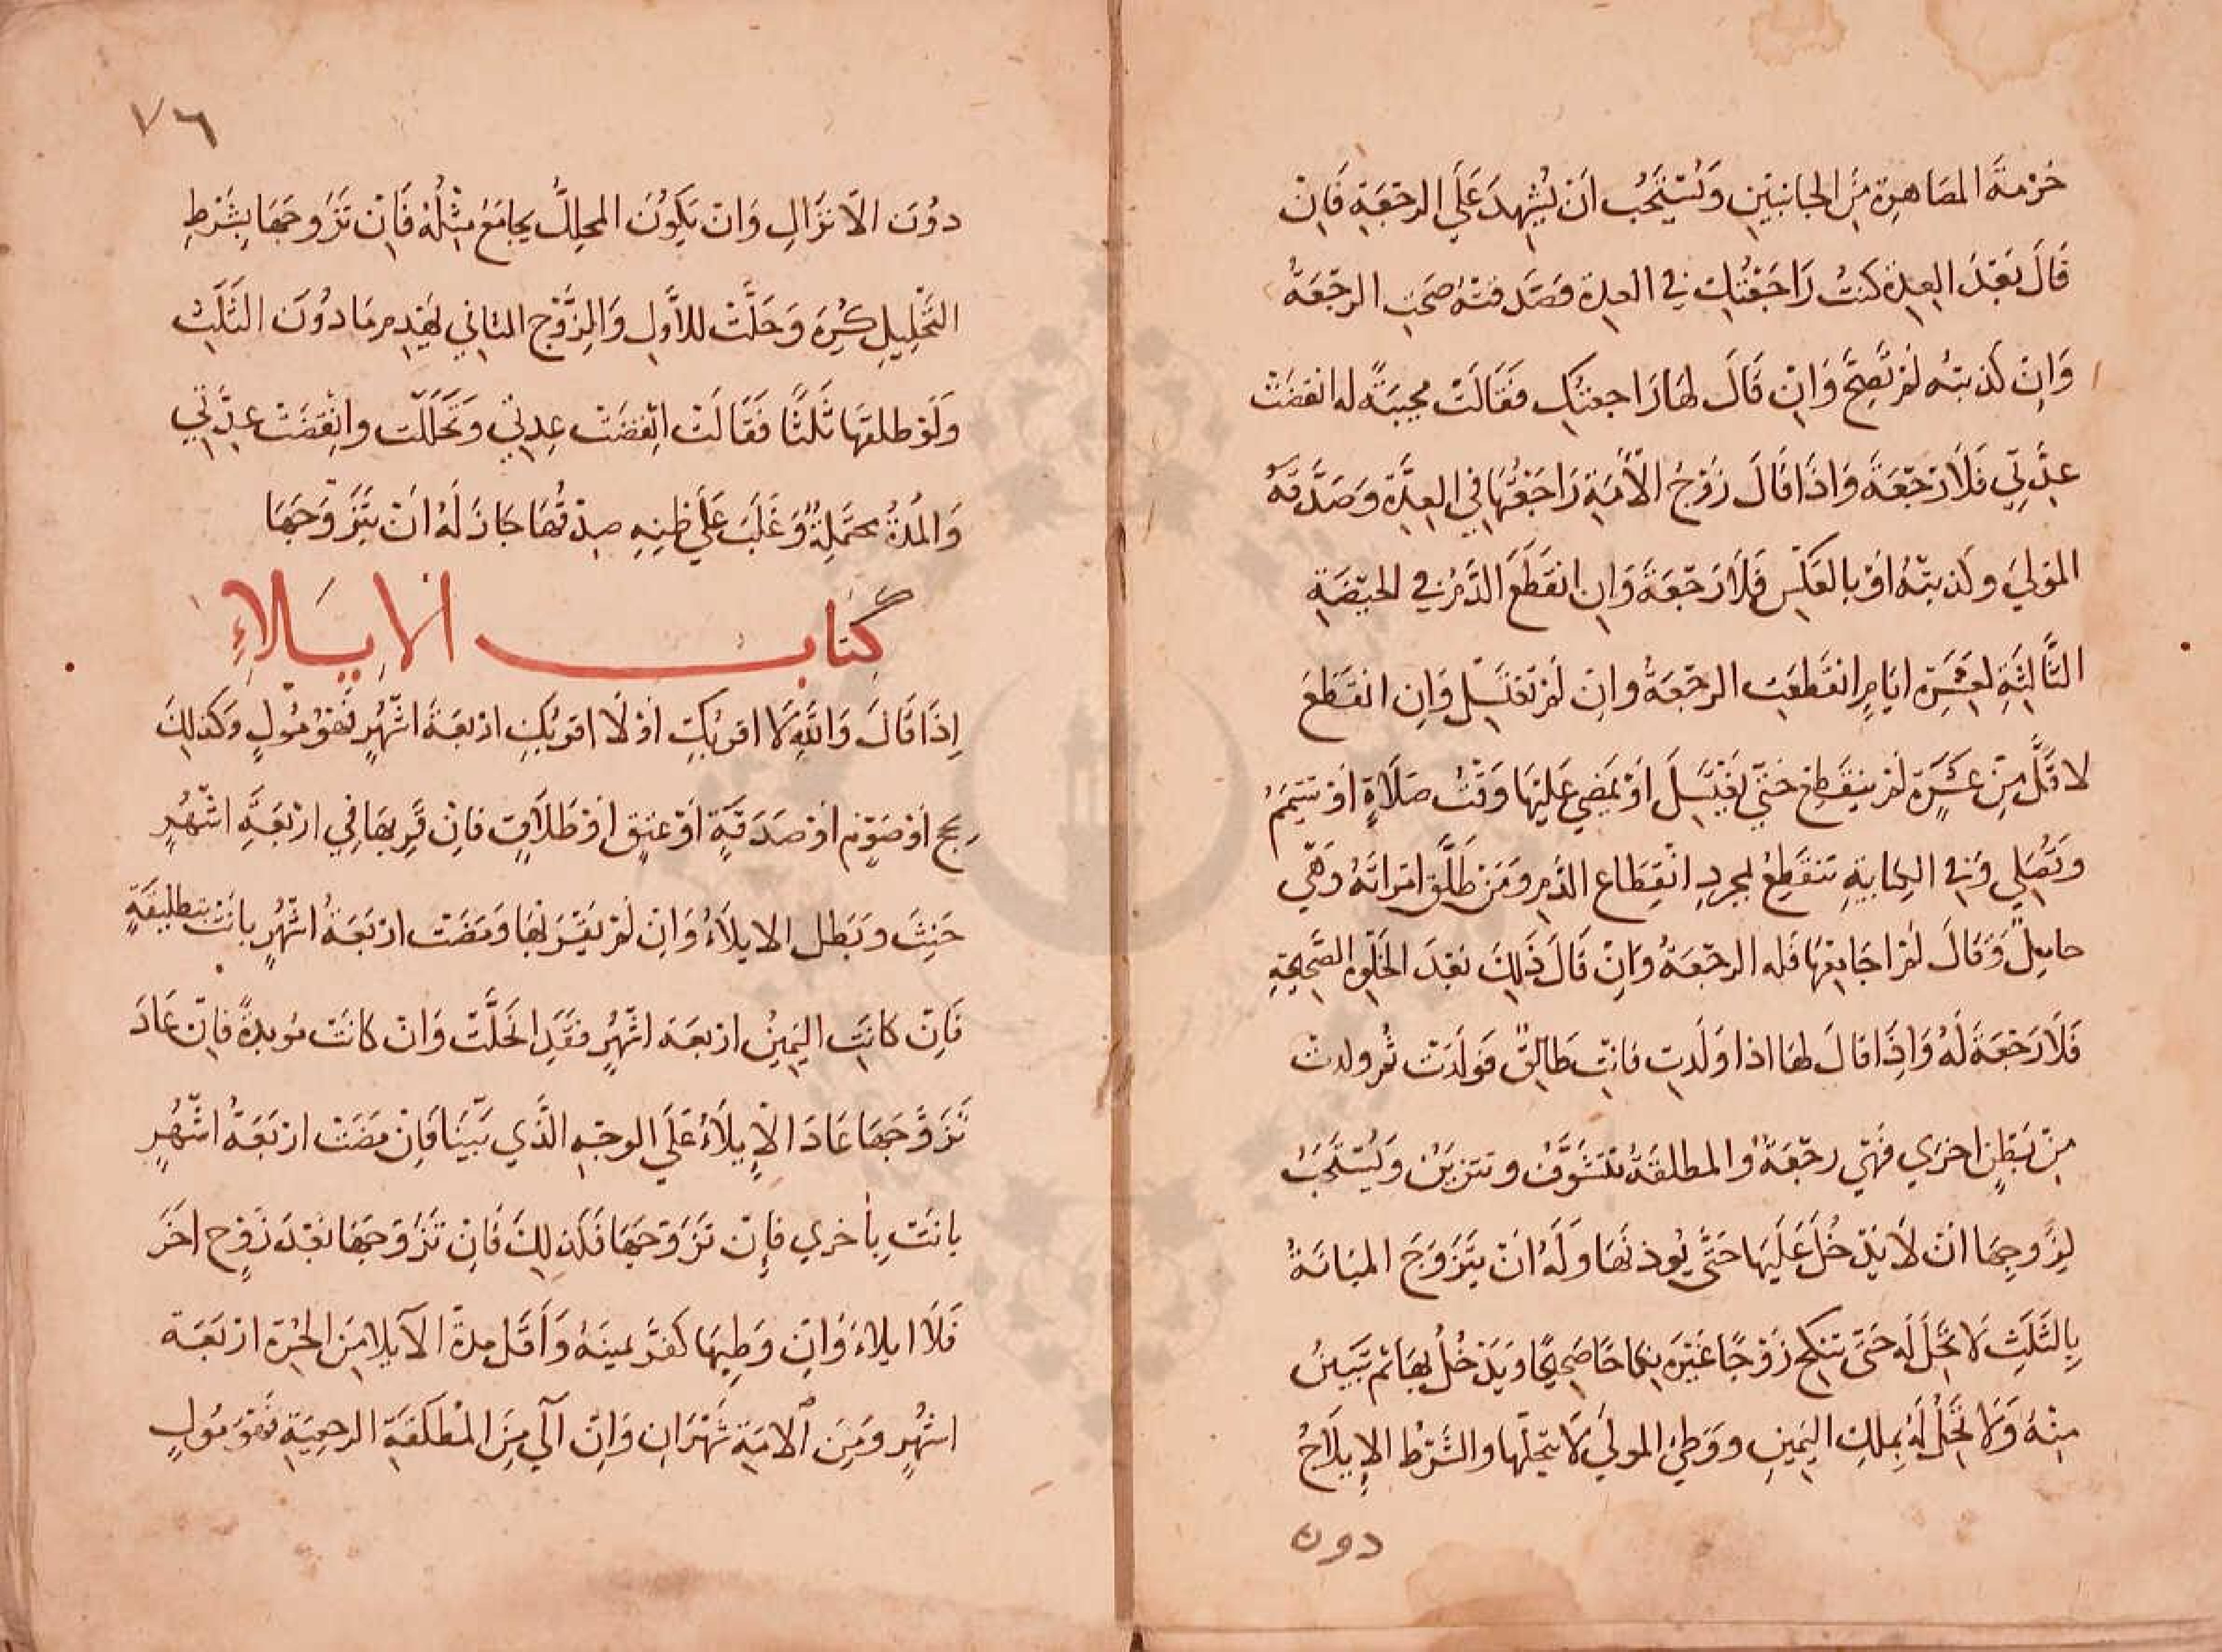 حُرْمَةَ المصَاهرة مِنَ الجانبَيْنِ وَيُسْتَحَبُ اَنْ يُشْهِدَ عَلَي الرجْعَةِ فَاِنْ
قَالَ بَعْدَ العِدة كنتُ رَاجَعْتُكِ في العدة فصَدقتهُ صَحتِ الرجْعَةُ
وَاِنْ كذبتهُ لَمْ تَصِحَّ وَاِنْ قَالَ لهَا رَاجعتكِ فَقَالَتْ مجيبَةً له انقضَتْ
عِدَّتِي فَلَا رَجْعَةَ وَاذَا قَالَ زَوْجُ الْأَمَةِ رَاجَعْتُهَا فِي العِدَّةِ وَصَدَّقَهُ
المَوْليَ وكذبتْهُ اوْ بالعَكْسِ فَلَا رَجْعَةَ وَاِن انقَطَعَ الدَّمُ في الحَيْضَةِ
الثَّالثَةِ لِعَشَرَةِ ايَامٍ انقَطَعَتِ الرجْعَةُ واِنْ لَمْ تَغْتَسِلْ وَاِن انقَطَعَ
لاقَلَّ مِنْ عَشَرَةٍ لَمْ يَنْقَطِعْ حَتّي تَغْتَسِلَ اَوْ يَمْضيَ عَلَيْهَا وَقْتُ صَلَاةٍ اوْ تتيَممَ
وَتُصَلي وَفي الكتابيةِ تنقَطِعُ لمجردِ انْقِطَاعِ الدَّمِ وَمَنْ طَلَّقَ امْرَاتَهُ وَهْيَ
حامِلٌ وَقَالَ لَمْ اجَامِعْهَا فله الرجْعَةُ وَاِنْ قَالَ ذَلِكَ بَعْدَ الخَلْوةِ الصَّحِيحَةِ
فَلَا رَجْعَةَ لَهُ وَاِذَا قَالَ لهَا اذا وَلَدتِ فانْتِ طَالِقٌ فَوَلَدَتْ ثُم ولدتْ
مِنْ بَطْنٍ اخرَي فَهْيَ رجْعَةٌ والمطلقَةُ تتشَوَّفُ وتتزيَنُ وَيُسْتَحَبُ
لِزَوجِهَا انْ لَا يَدْخُلَ عَلَيْهَا حَتَّى يُوذنَهَا وَلَهُ اَنْ يَتَزَوَجَ المبَانَةُ
بِالثَلَثِ لَا تَحِلُ لَه حَتّى تنكِحَ زَوْجًا غَيْرَه نِكاحًا صَحِيحًا وَيَدْخُلُ بهَا ثم تَبِينُ
مِنْهُ وَلَا تَحِلُّ لَهُ بملكِ اليَمينِ ووَطيُ المولَي لَا يحلّها والشَرْطُ الإِيلَاجُ
دون
٧٦
دوُنَ الاَنزَالِ وَانْ يَكُونَ المحلِلُ يجامَعُ مِثْلُهُ فَاِنْ تَزَوجَهَا بِشَرْطِ
التَّحْلِيلِ كُرِهَ وَحَلَّتْ للاَّوَلِ وَالزَّوْجُ الثاني يَهْدِمُ مَا دُوْنَ الثَّلَثِ
وَلَوْ طلقهَا ثَلثًا فَقَالَتْ انْقَضَتْ عِدتي وَتَحَلَلّت وانْقَضَتْ عِدَّتي
وَالمُدةُ محتَمِلَةٌ وَغَلَبَ عَلَي ظنِهِ صِدْقُهَا جَازَ لَهُ انْ يَتَزَوَّجَهَا
كِتَابُ الايلاءِ
اِذَا قَالَ وَاللهِ لَا اقربُكِ اوْ لَا اقربُكِ اربَعَةَ اشْهُرٍ فَهْوَ مُولٍ وَكذلِكَ
بحج اَوْ صَوْمٍ اوْ صَدَقَةٍ اوْ عتقٍ اوْ طَلَاقٍ فاِنْ قَرِبهَا فِي ارْبَعَةِ اشْهُرٍ
حَنِثَ وبَطل الايلَاءُ وَاِنْ لَمْ يَقْرَبْهَا ومَضَتْ ارْبَعَةُ اشْهُرٍ بانَتْ بتطليقَةٍ
فَاِنْ كانَتِ اليَمِينُ اربعَةَ اشْهُرٍ فَقَدِ انحَلَّتْ وَانْ كانَتْ موبدةً فاِنْ عَادَ
تَزَوَّجَهَا عَادَ الْاِيلَاءُ عَلَي الوجْهِ الَّذي بَيَّنَا فَاِنْ مَضَتْ ارْبَعَةُ اشْهُرٍ
بانَتْ بِأخري فاِنْ تَزَوَّجَهَا فَكذلِكَ فَاِنْ تَزَوَّجَهَا بَعْدَ زَوْجٍ اخَرَ
فَلَا ايلاءَ وَاِنْ وَطِيهَا كفَّر يمينَهُ وَأَقَل مدةَ الاَيلاءِ مِنَ الحُرةِ ارْبَعَة
اشْهُرٍ ومِنَ الامَةِ شَهْرَانِ وَاِنْ آلَي مِنَ المُطلَّقَةِ الرجعِيَةِ فَهْوَ مُولٍ